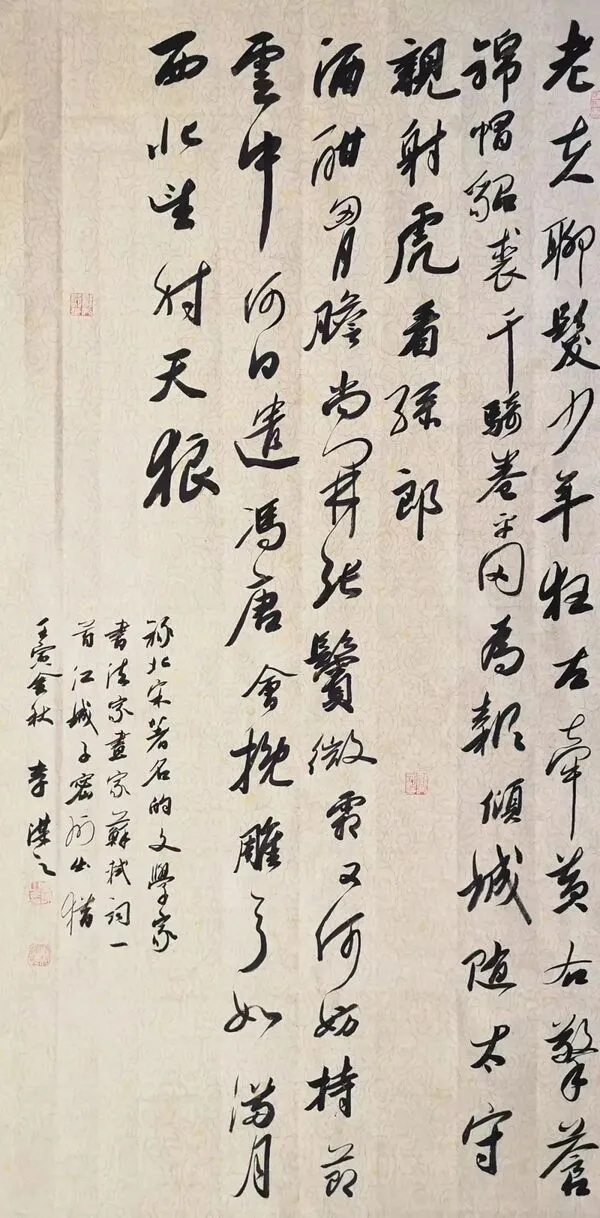 老夫聊髮少年狂左牽黃右擎蒼
錦帽貂裘千騎卷平岡為報傾城随太守
親射虎看孫郎
酒酣胷膽尚開張鬢微霜又何妨持節
雲中何日遣馮唐會挽雕弓如滿月
西北望射天狼
錄北宋著名的文學家
書法家畫家蘇軾詞一
首江城子密州出獵
壬寅金秋 李